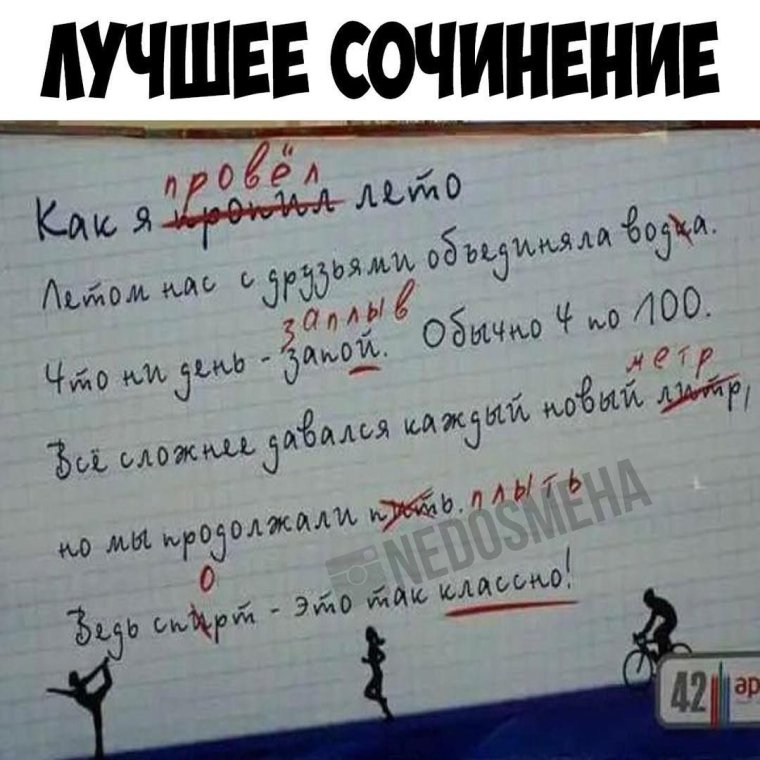 ЛУЧШЕЕ СОЧИНЕНИЕ
провёл
Как я пропил лето
Летом нас с друзьями объединяла водка.
заплыв
Что ни день - запой. Обычно 4 по 100.
метр
Всё сложнее давался каждый новый литр,
но мы продолжали пить. плыть
о
Ведь спирт - это так классно!
NEDOSMEHA
42 ар